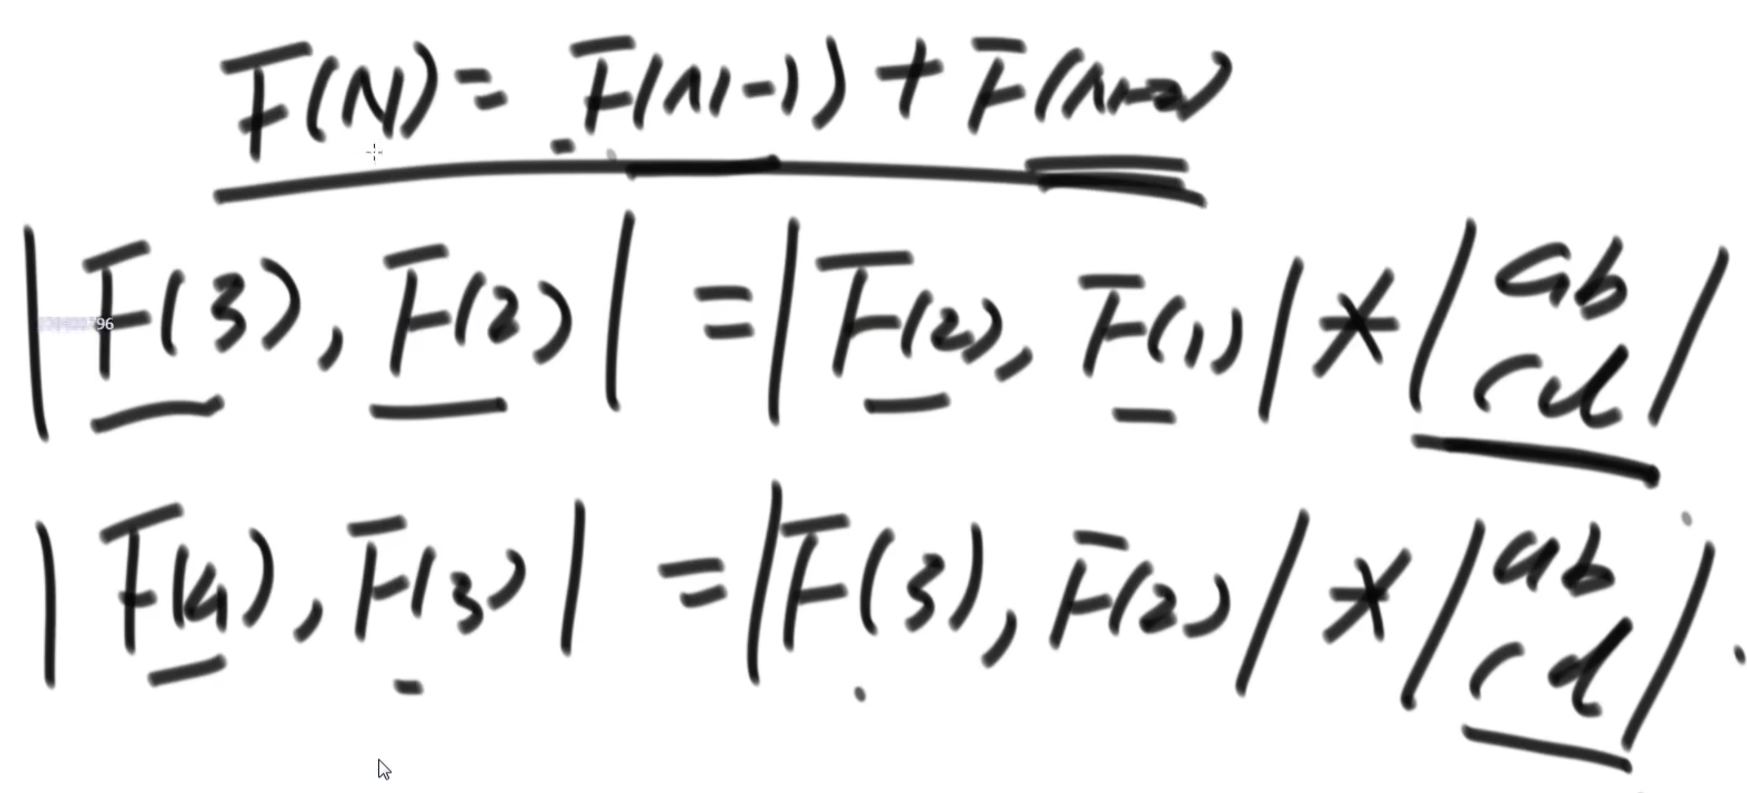 F(N) = F(N-1) + F(N-2)
|F(3), F(2)| = |F(2), F(1)| * |a b
c d|
|F(4), F(3)| = |F(3), F(2)| * |a b
c d|.